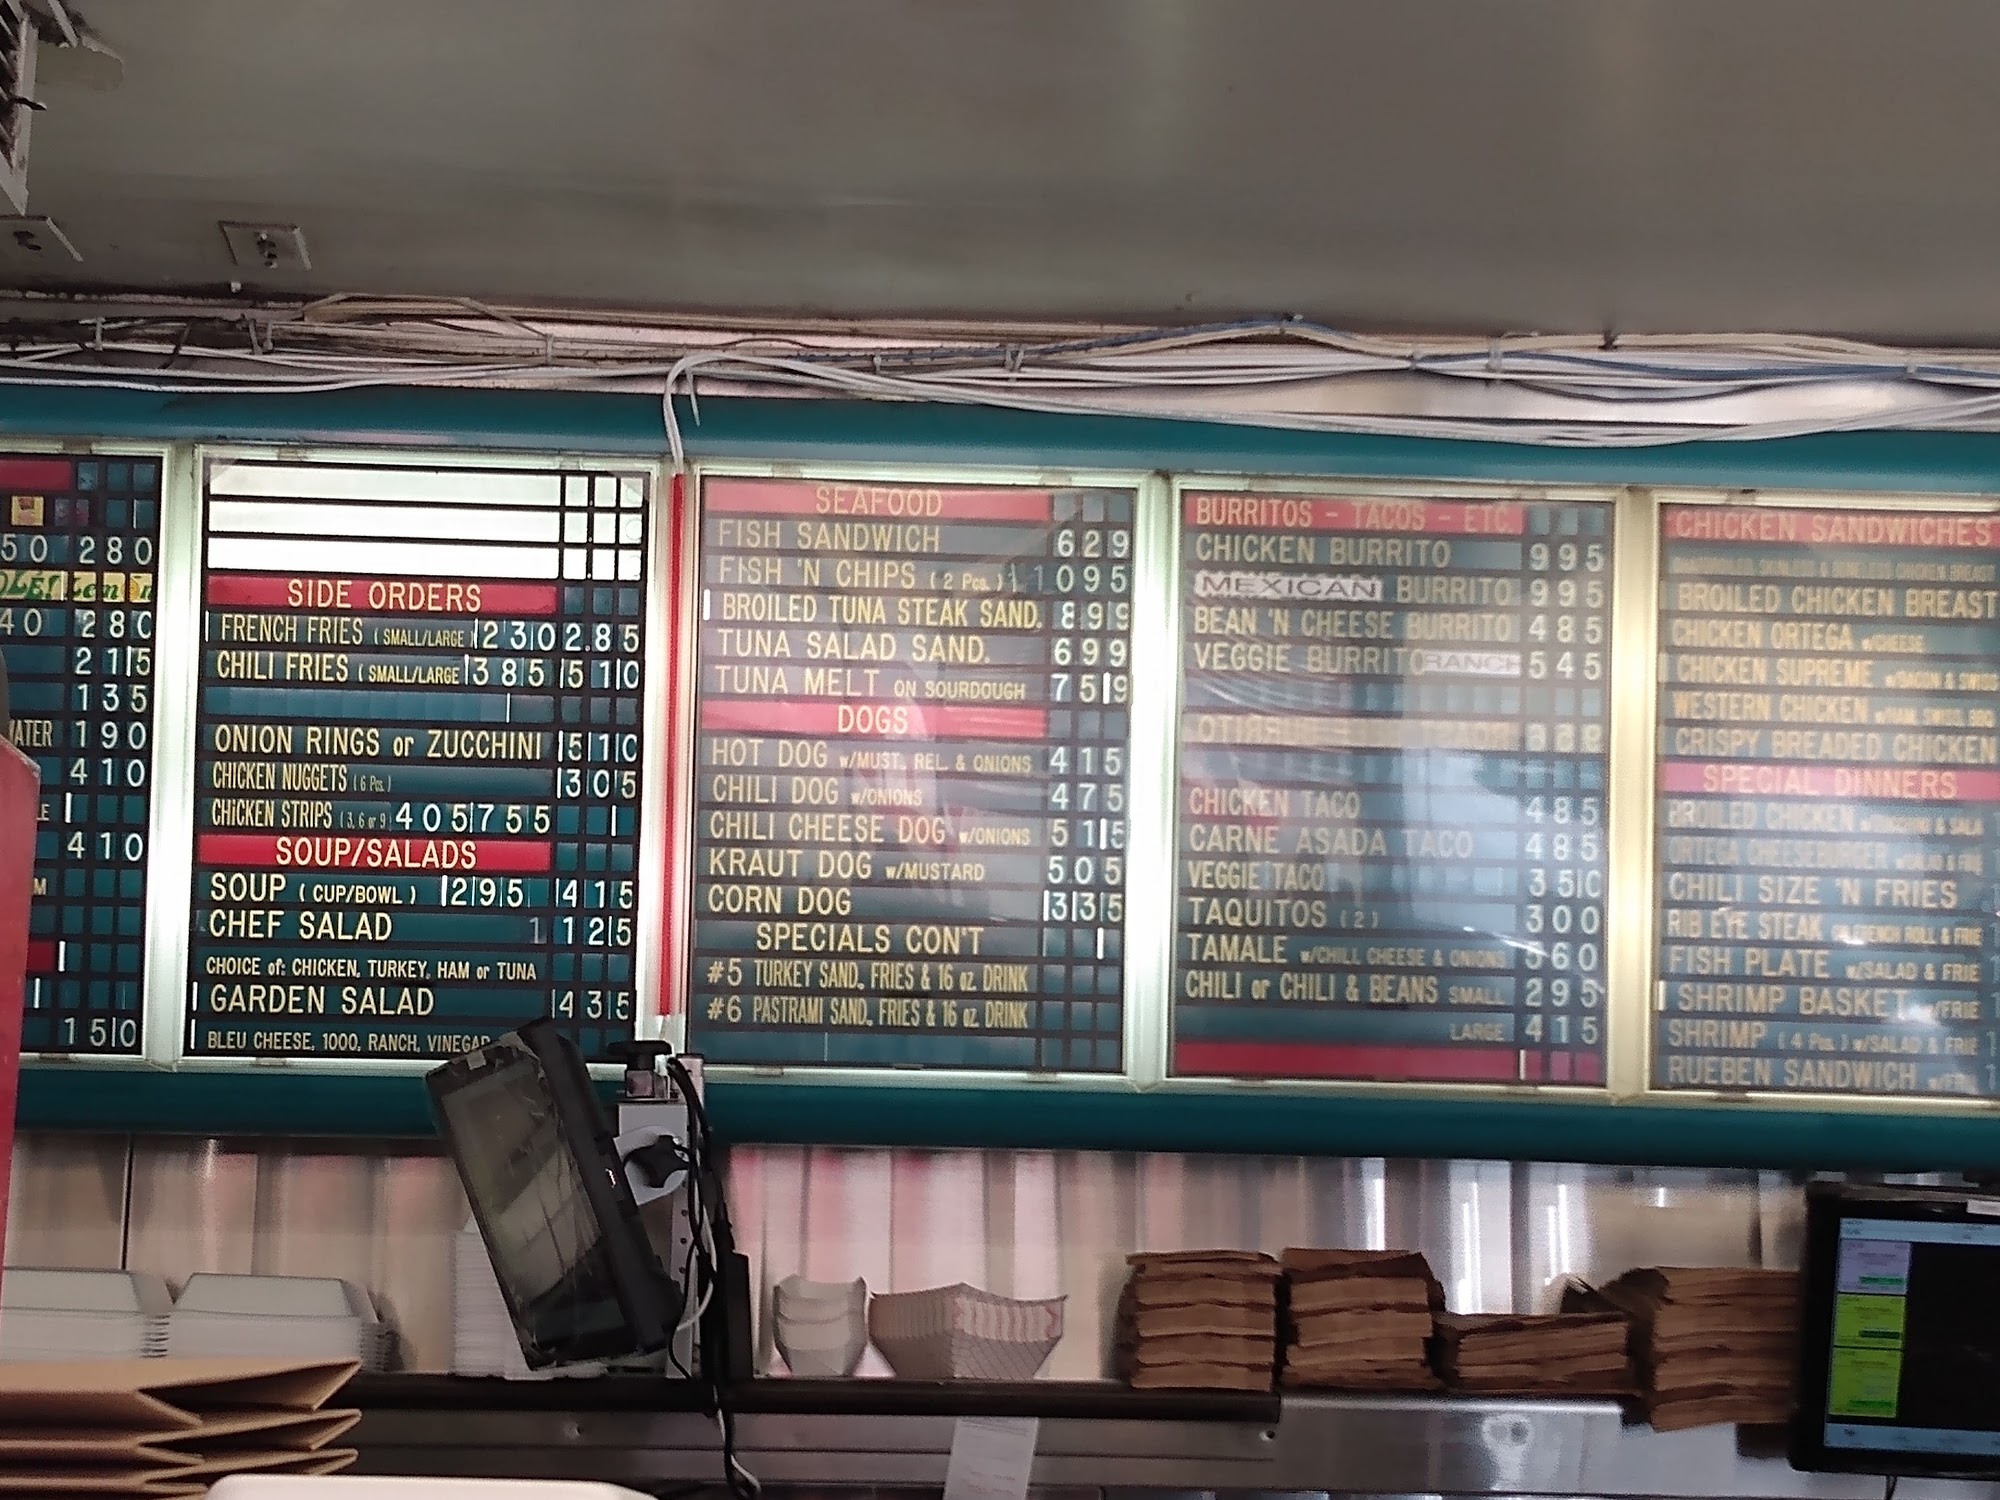 50 280
40 280
215
135
WATER 190
410
410
150
SIDE ORDERS
FRENCH FRIES (SMALL/LARGE 230 2.85
CHILI FRIES (SMALL/LARGE 385 510
ONION RINGS or ZUCCHINI 510
CHICKEN NUGGETS (6 Pcs.) 305
CHICKEN STRIPS (3, 6 or 9) 405 755
SOUP/SALADS
SOUP (CUP/BOWL) 295 415
CHEF SALAD 1125
CHOICE of: CHICKEN, TURKEY, HAM or TUNA
GARDEN SALAD 435
BLEU CHEESE, 1000, RANCH, VINEGAR
SEAFOOD
FISH SANDWICH 629
FISH 'N CHIPS (2 Pcs.) 1095
BROILED TUNA STEAK SAND. 899
TUNA SALAD SAND. 699
TUNA MELT ON SOURDOUGH 759
DOGS
HOT DOG w/MUST. REL. & ONIONS 415
CHILI DOG w/ONIONS 475
CHILI CHEESE DOG w/ONIONS 515
KRAUT DOG w/MUSTARD 505
CORN DOG 335
SPECIALS CON'T
#5 TURKEY SAND., FRIES & 16 oz. DRINK
#6 PASTRAMI SAND., FRIES & 16 oz. DRINK
BURRITOS - TACOS - ETC.
CHICKEN BURRITO 995
MEXICAN BURRITO 995
BEAN 'N CHEESE BURRITO 485
VEGGIE BURRITO RANCH 545
CHICKEN TACO 485
CARNE ASADA TACO 485
VEGGIE TACO 350
TAQUITOS (2) 300
TAMALE w/CHILI CHEESE & ONIONS 560
CHILI or CHILI & BEANS SMALL 295
LARGE 415
CHICKEN SANDWICHES
BROILED CHICKEN BREAST
CHICKEN ORTEGA w/CHEESE
CHICKEN SUPREME w/BACON & SWISS
WESTERN CHICKEN w/HAM, SWISS, BBQ
CRISPY BREADED CHICKEN
SPECIAL DINNERS
BROILED CHICKEN
ORTEGA CHEESEBURGER w/SALAD & FRIE
CHILI SIZE 'N FRIES
RIB EYE STEAK ON FRENCH ROLL & FRIE
FISH PLATE w/SALAD & FRIE
SHRIMP BASKET w/FRIE
SHRIMP (4 Pcs.) w/SALAD & FRIE
RUEBEN SANDWICH w/FRIE